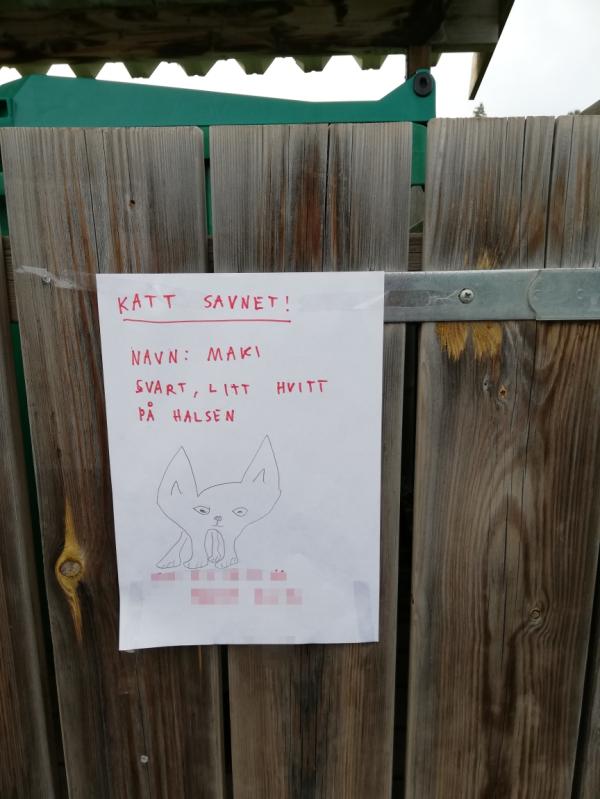 KATT SAVNET!
NAVN: MAKI
SVART, LITT HVITT
PÅ HALSEN